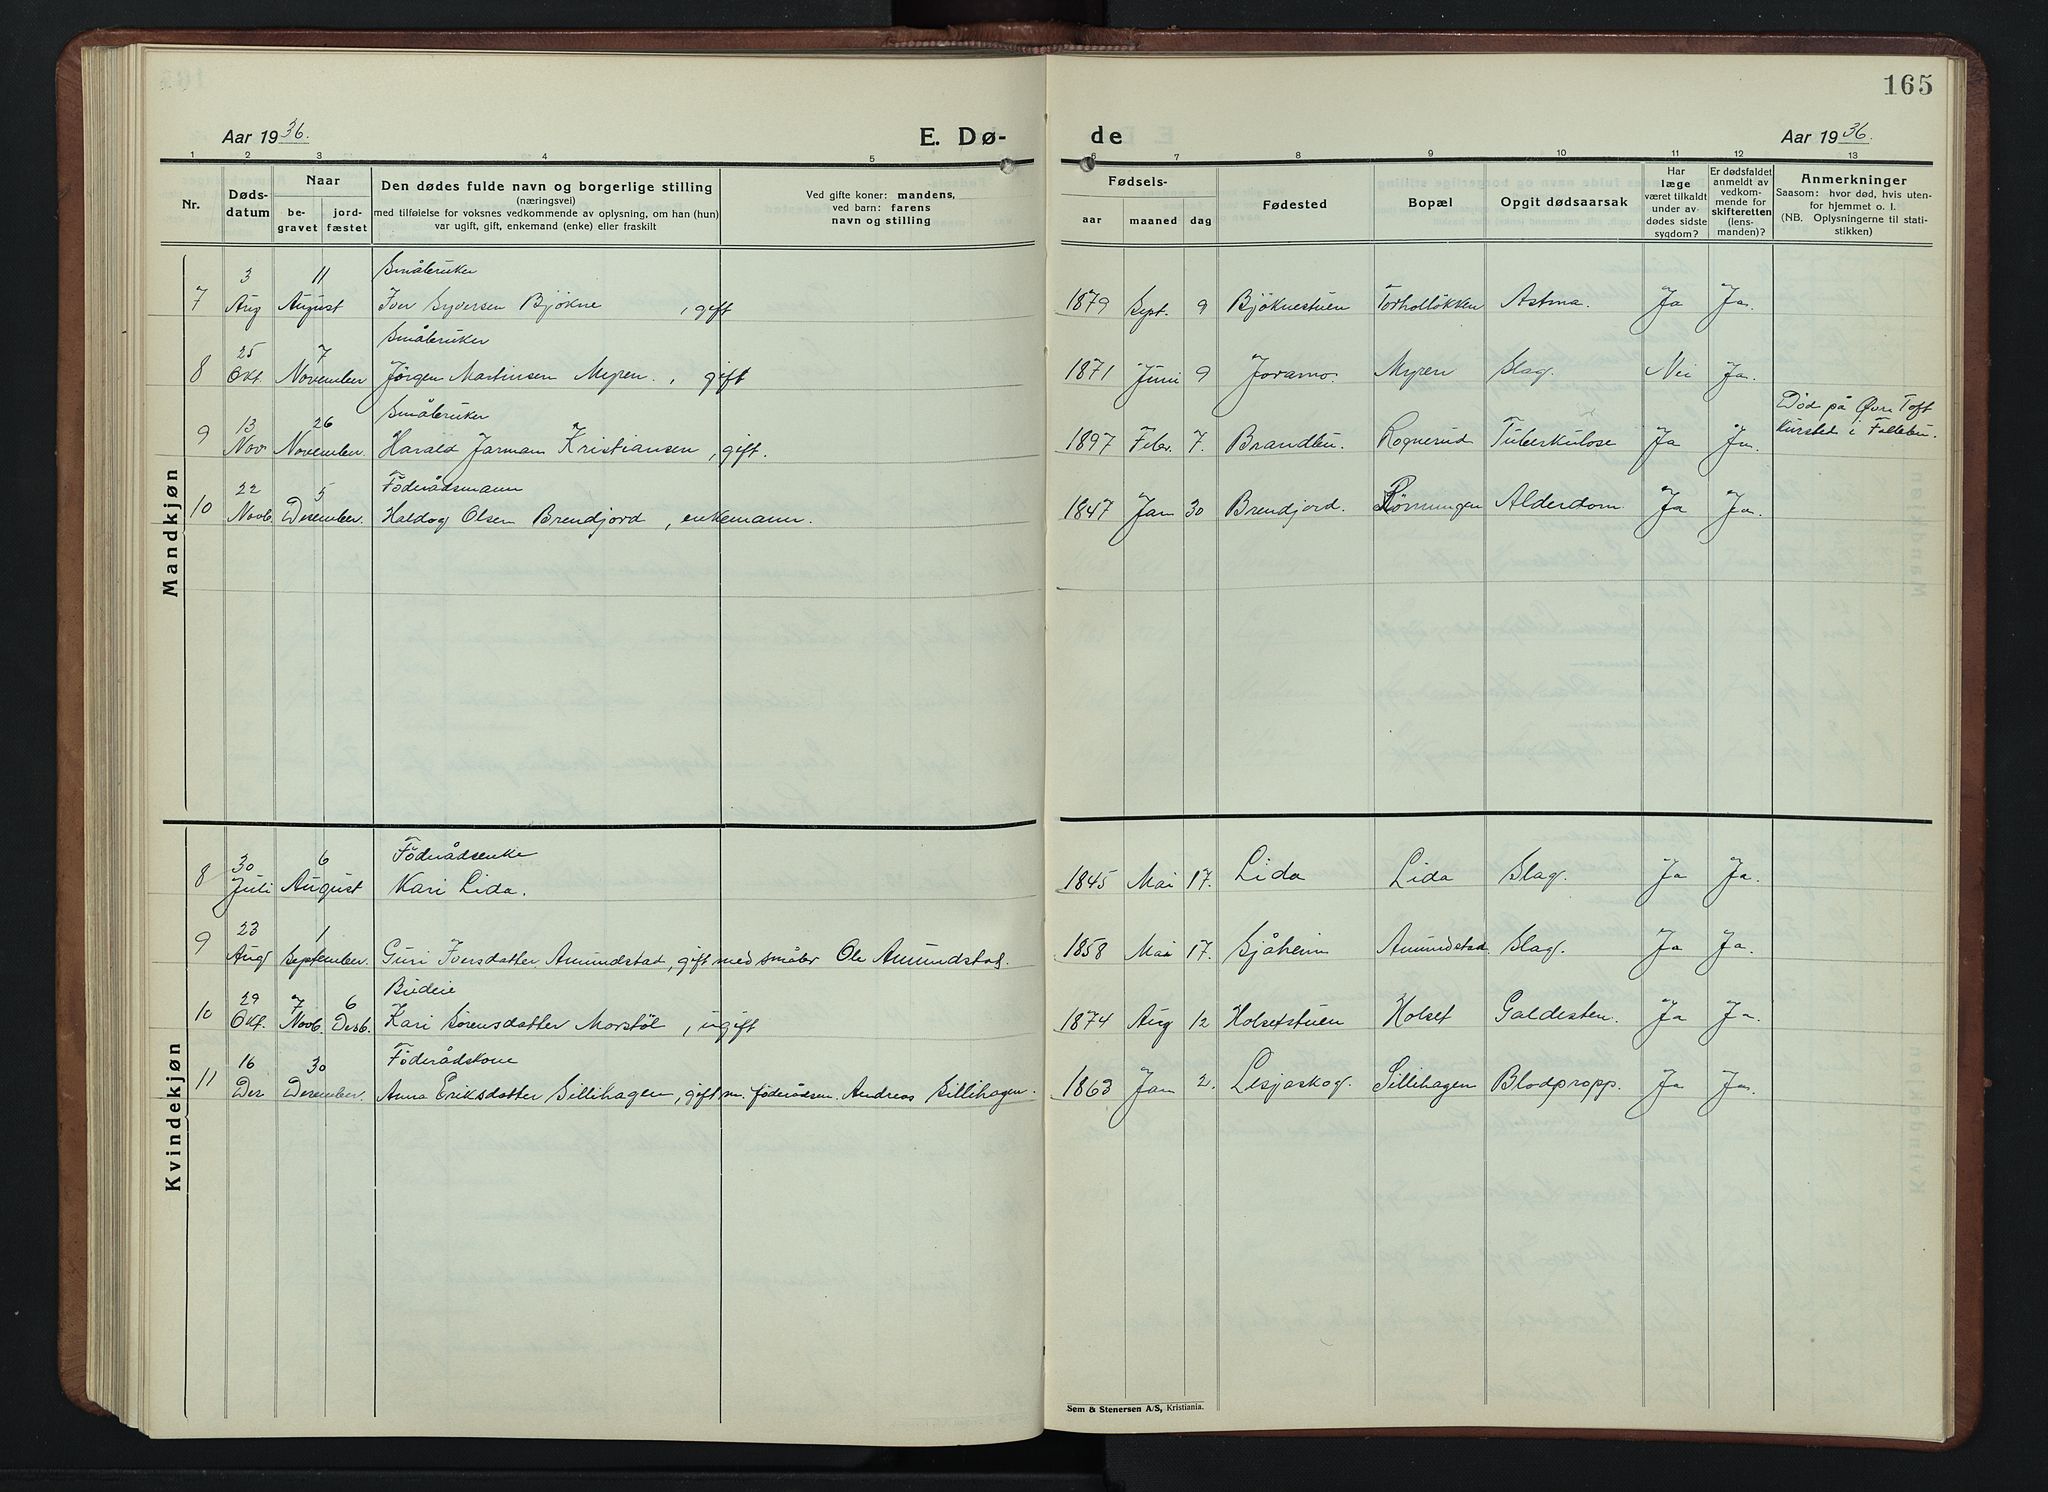 165
Aar 1936.
E. Dø-
de
Aar 1936.
1 2 3 4 5 6 7 8 9 10 11 12 13
Nr.
Døds-
datum
Naar
be-
gravet
jord-
fæstet
Den dødes fulde navn og borgerlige stilling
(næringsvei)
med tilføielse for voksnes vedkommende av oplysning, om han (hun)
var ugift, gift, enkemand (enke) eller fraskilt
Ved gifte koner: mandens,
ved barn: farens
navn og stilling
Fødsels-
aar maaned dag
Fødested
Bopæl
Opgit dødsaarsak
Har
læge
været tilkaldt
under av-
dødes sidste
sygdom?
Er dødsfaldet
anmeldt av
vedkom-
mende for
skifteretten
(lens-
manden)?
Anmerkninger
Saasom: hvor død, hvis uten-
for hjemmet o. l.
(NB. Oplysningerne til stati-
stikken)
Mandkjøn
3 11 Småbruker
7 Aug August Iver Syversen Bjøkne , gift 1879 Sept. 9 Bjøknestuen Torholløkken Astma. Ja Ja.
25 7 Småbruker
8 Okt. November Jørgen Martinsen Myren. , gift 1871 Juni 9 Joramo. Myren Slag. Nei Ja.
13 26 Småbruker
9 Nov. November. Harald Jarmann Kristiansen , gift. 1897 Febr. 7. Brandbu. Rognerud Tuberkulose Ja Ja.
Død på Øvre Toft
kursted i Follebu.
22 5 Föderådsmann
10 Novb. Desember. Haldog Olsen Brendjord , enkemann. 1847 Jan 30 Brendjord. Rönningen Alderdom. Ja Ja.
Kvindekjøn
30 6 Föderådsenke
8 Juli August Kari Lida. 1845 Mai 17. Lida Lida Slag. Ja Ja.
23 1
9 Aug September. Guri Iversdatter Amundstad, gift med småbr Ole Amundstad. 1858 Mai 17. Sjåheim Amundstad. Slag. Ja Ja.
29 7 6 Budeie
10 Okt. Novb. Desb. Kari Sørensdatter Morstöl , ugift 1874 Aug 12 Holsetstuen Holset Galdesten. Ja Ja.
16 30 Föderådskone
11 Des Desember. Anna Eriksdatter Sillihagen, gift m. föderådsm. Andreas Sillihagen. 1863 Jan 2. Lesjaskog. Sillihagen Blodpropp. Ja Ja.
Sem & Stenersen A/S, Kristiania.